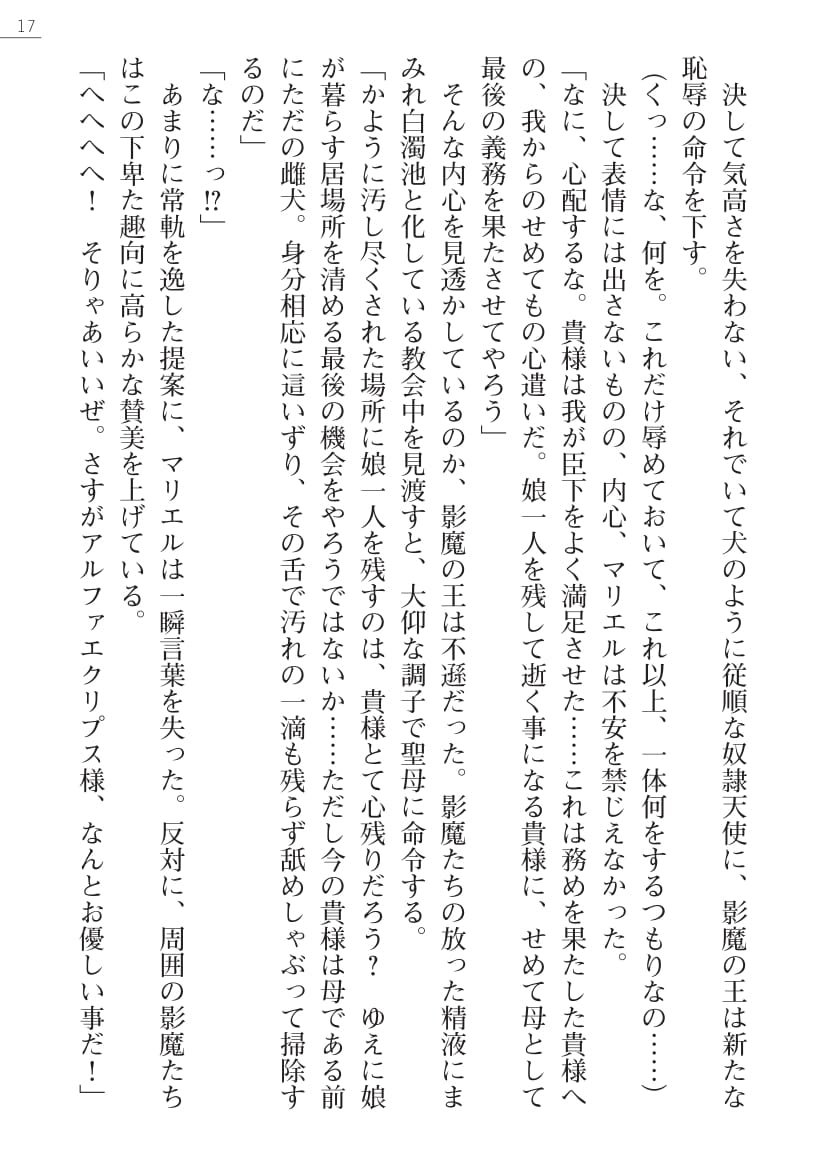 17
決して気高さを失わない、それでいて犬のように従順な奴隷天使に、影魔の王は新たな
恥辱の命令を下す。
(くっ……な、何を。これだけ辱めておいて、これ以上、一体何をするつもりなの……)
決して表情には出さないものの、内心、マリエルは不安を禁じえなかった。
「なに、心配するな。貴様は我が臣下をよく満足させた……これは務めを果たした貴様へ
の、我からのせめてもの心遣いだ。娘一人を残して逝く事になる貴様に、せめて母として
最後の義務を果たさせてやろう」
そんな内心を見透かしているのか、影魔の王は不遜だった。影魔たちの放った精液にま
みれ白濁池と化している教会中を見渡すと、大仰な調子で聖母に命令する。
「かように汚し尽くされた場所に娘一人を残すのは、貴様とて心残りだろう？　ゆえに娘
が暮らす居場所を清める最後の機会をやろうではないか……ただし今の貴様は母である前
にただの雌犬。身分相応に這いずり、その舌で汚れの一滴も残らず舐めしゃぶって掃除す
るのだ」
「な……っ!?」
あまりに常軌を逸した提案に、マリエルは一瞬言葉を失った。反対に、周囲の影魔たち
はこの下卑た趣向に高らかな賛美を上げている。
「へへへへ！　そりゃあいいぜ。さすがアルファエクリプス様、なんとお優しい事だ！」